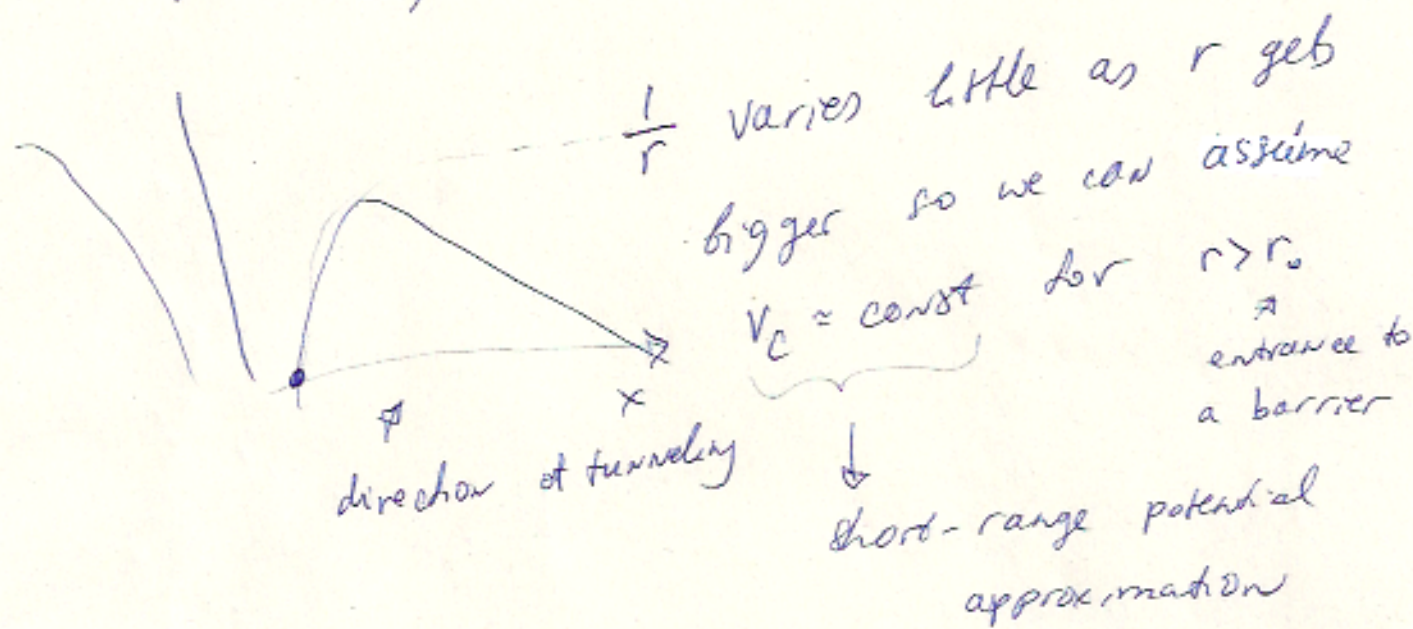 1/r varies little as r gets
bigger so we can assume
V_C ≈ const for r>r₀
entrance to
a barrier
x
direction of tunneling
short-range potential
approximation